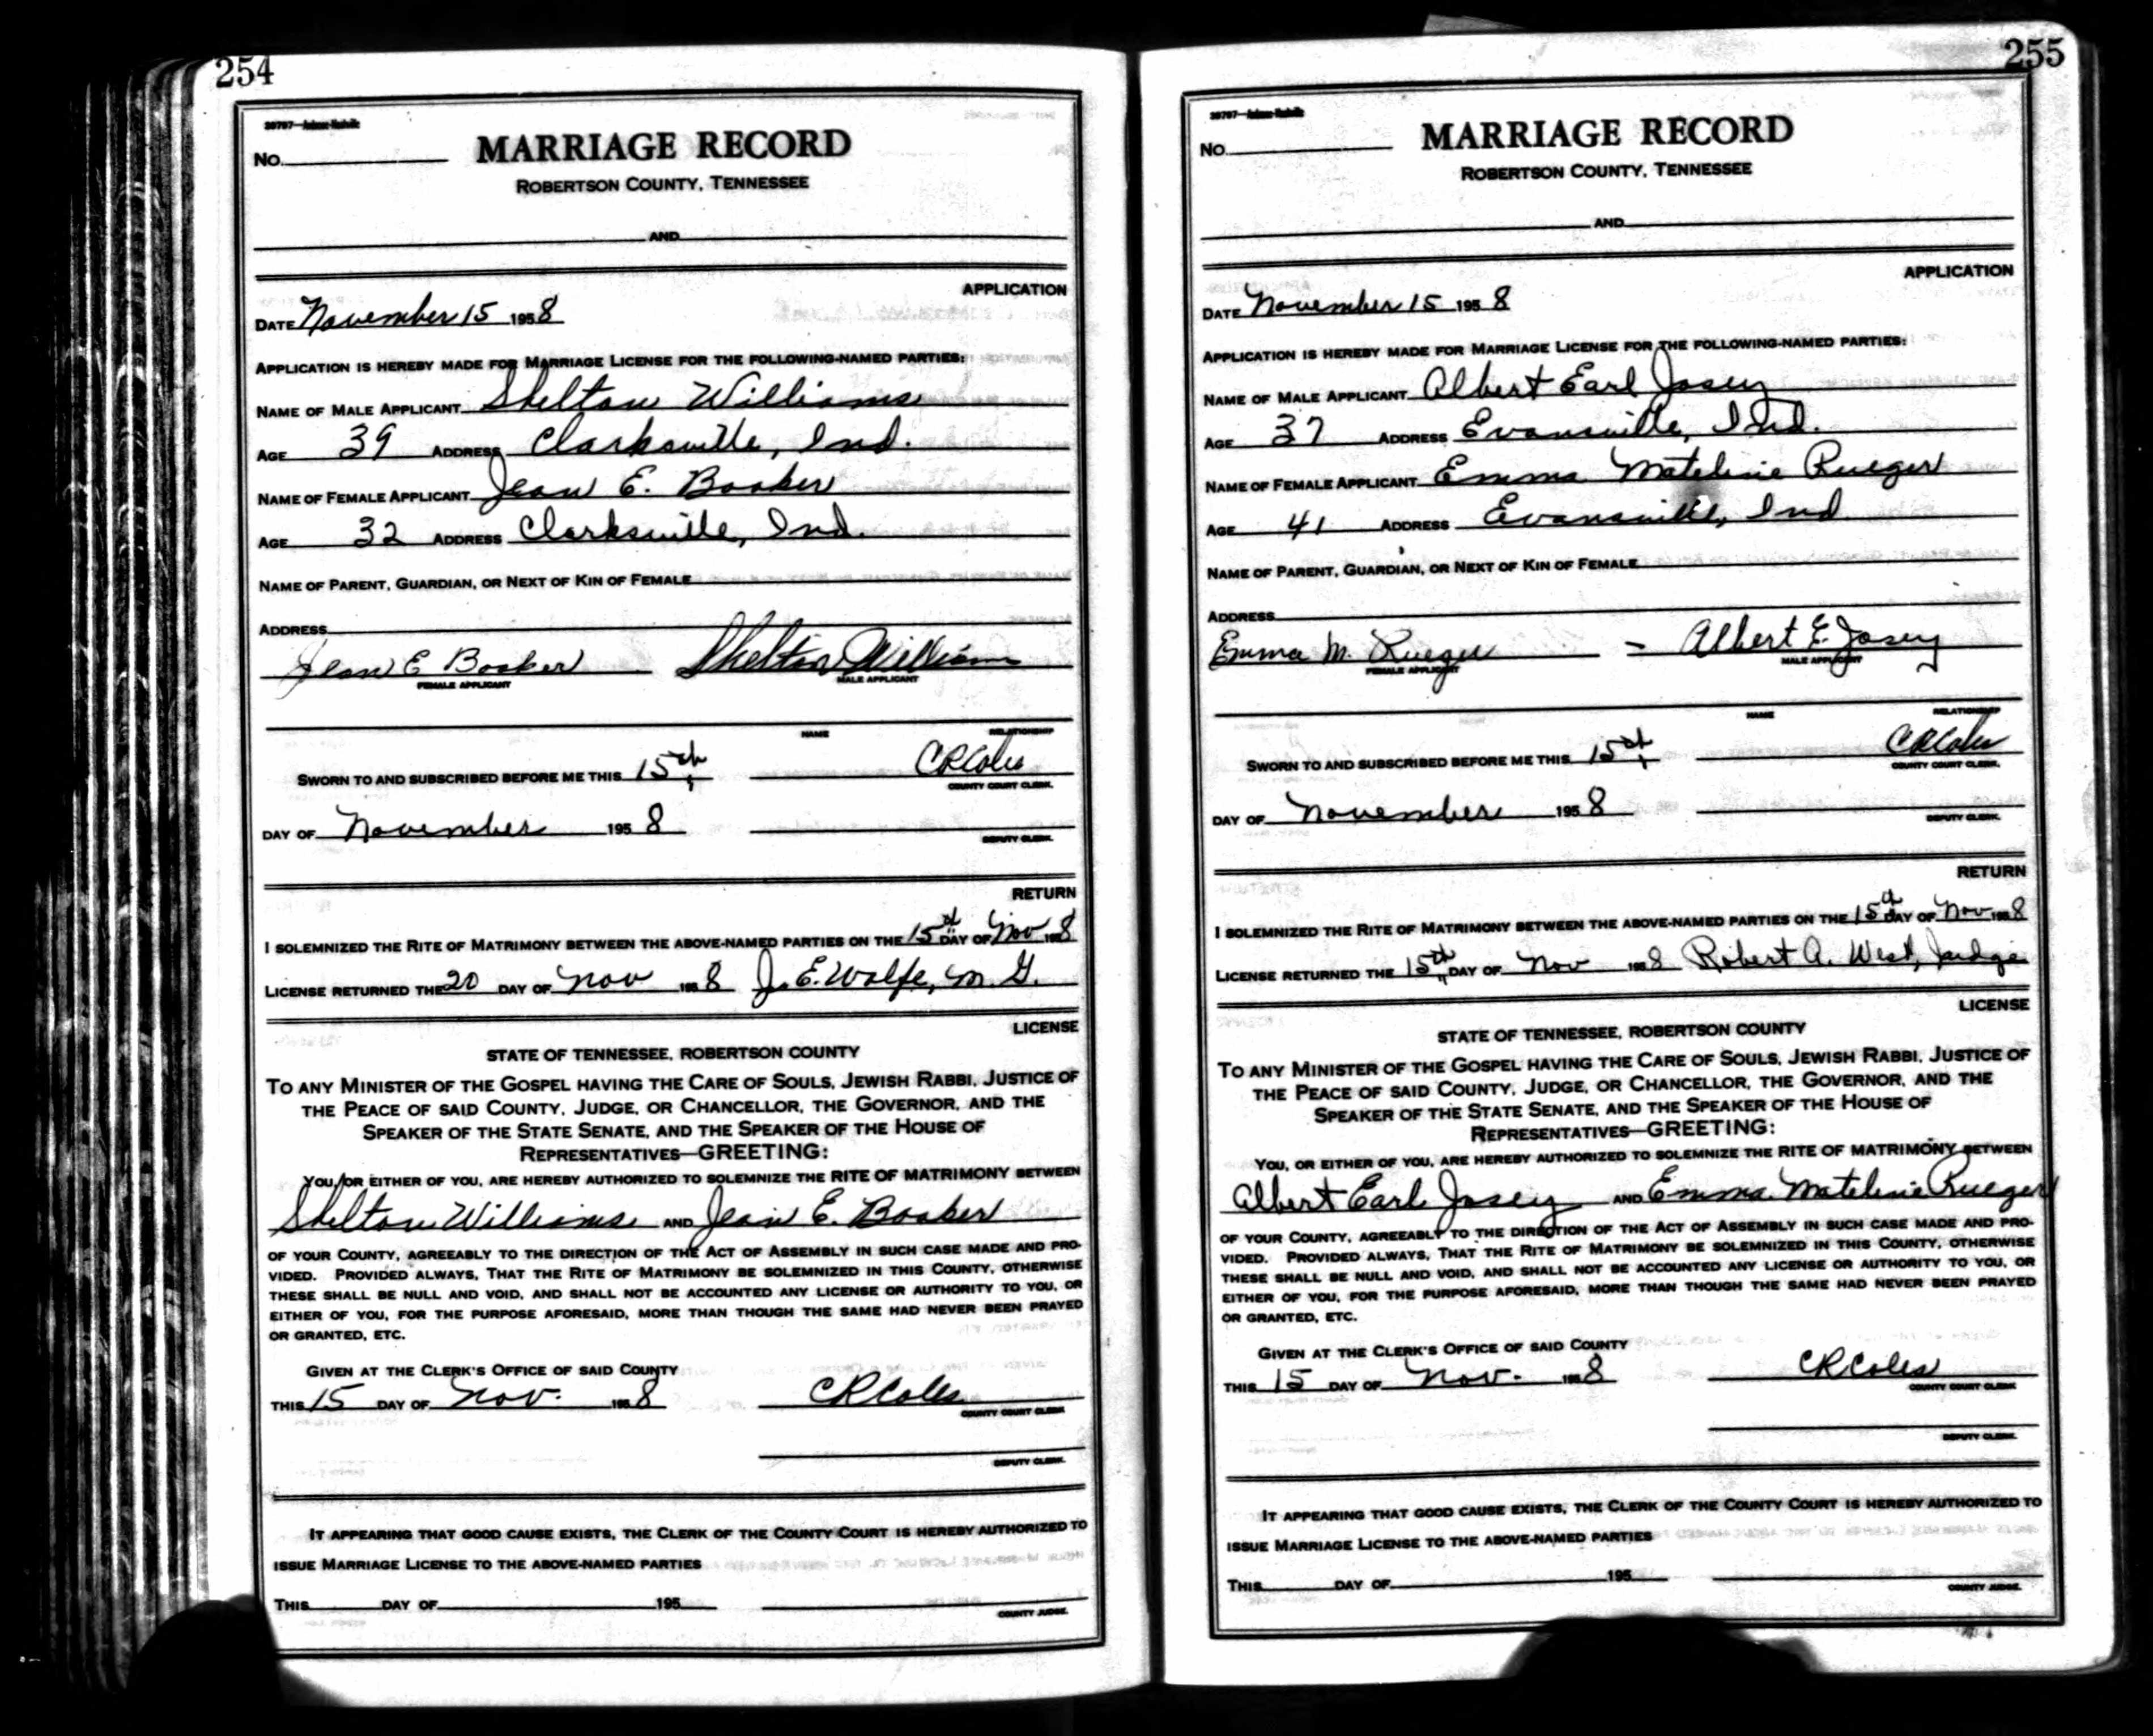 254
No. MARRIAGE RECORD
ROBERTSON COUNTY, TENNESSEE
AND
APPLICATION
DATE November 15 1958
APPLICATION IS HEREBY MADE FOR MARRIAGE LICENSE FOR THE FOLLOWING-NAMED PARTIES:
NAME OF MALE APPLICANT Shelton Williams
AGE 39 ADDRESS Clarksville, Ind.
NAME OF FEMALE APPLICANT Jean E. Booker
AGE 32 ADDRESS Clarksville, Ind.
NAME OF PARENT, GUARDIAN, OR NEXT OF KIN OF FEMALE
ADDRESS
Jean E Booker Shelton Williams
FEMALE APPLICANT MALE APPLICANT
NAME RELATIONSHIP
SWORN TO AND SUBSCRIBED BEFORE ME THIS 15th CRColes
COUNTY COURT CLERK.
DAY OF November 1958
DEPUTY CLERK.
RETURN
I SOLEMNIZED THE RITE OF MATRIMONY BETWEEN THE ABOVE-NAMED PARTIES ON THE 15th DAY OF Nov 1958
LICENSE RETURNED THE 20 DAY OF Nov 1958 J. E. Wolfe, M. G.
LICENSE
STATE OF TENNESSEE, ROBERTSON COUNTY
TO ANY MINISTER OF THE GOSPEL HAVING THE CARE OF SOULS, JEWISH RABBI, JUSTICE OF
THE PEACE OF SAID COUNTY, JUDGE, OR CHANCELLOR, THE GOVERNOR, AND THE
SPEAKER OF THE STATE SENATE, AND THE SPEAKER OF THE HOUSE OF
REPRESENTATIVES—GREETING:
YOU, OR EITHER OF YOU, ARE HEREBY AUTHORIZED TO SOLEMNIZE THE RITE OF MATRIMONY BETWEEN
Shelton Williams AND Jean E. Booker
OF YOUR COUNTY, AGREEABLY TO THE DIRECTION OF THE ACT OF ASSEMBLY IN SUCH CASE MADE AND PRO-
VIDED. PROVIDED ALWAYS, THAT THE RITE OF MATRIMONY BE SOLEMNIZED IN THIS COUNTY, OTHERWISE
THESE SHALL BE NULL AND VOID, AND SHALL NOT BE ACCOUNTED ANY LICENSE OR AUTHORITY TO YOU, OR
EITHER OF YOU, FOR THE PURPOSE AFORESAID, MORE THAN THOUGH THE SAME HAD NEVER BEEN PRAYED
OR GRANTED, ETC.
GIVEN AT THE CLERK'S OFFICE OF SAID COUNTY
THIS 15 DAY OF Nov. 1958 CRColes
COUNTY COURT CLERK
DEPUTY CLERK.
IT APPEARING THAT GOOD CAUSE EXISTS, THE CLERK OF THE COUNTY COURT IS HEREBY AUTHORIZED TO
ISSUE MARRIAGE LICENSE TO THE ABOVE-NAMED PARTIES
THIS DAY OF 195
COUNTY JUDGE.
255
No. MARRIAGE RECORD
ROBERTSON COUNTY, TENNESSEE
AND
APPLICATION
DATE November 15 1958
APPLICATION IS HEREBY MADE FOR MARRIAGE LICENSE FOR THE FOLLOWING-NAMED PARTIES:
NAME OF MALE APPLICANT Albert Earl Josey
AGE 37 ADDRESS Evansville, Ind.
NAME OF FEMALE APPLICANT Emma Mateline Rueger
AGE 41 ADDRESS Evansville, Ind
NAME OF PARENT, GUARDIAN, OR NEXT OF KIN OF FEMALE
ADDRESS
Emma M. Rueger - Albert E. Josey
FEMALE APPLICANT MALE APPLICANT
NAME RELATIONSHIP
SWORN TO AND SUBSCRIBED BEFORE ME THIS 15th CRColes
COUNTY COURT CLERK.
DAY OF November 1958
DEPUTY CLERK.
RETURN
I SOLEMNIZED THE RITE OF MATRIMONY BETWEEN THE ABOVE-NAMED PARTIES ON THE 15th DAY OF Nov 1958
LICENSE RETURNED THE 15th DAY OF Nov 1958 Robert A. West, Judge
LICENSE
STATE OF TENNESSEE, ROBERTSON COUNTY
TO ANY MINISTER OF THE GOSPEL HAVING THE CARE OF SOULS, JEWISH RABBI, JUSTICE OF
THE PEACE OF SAID COUNTY, JUDGE, OR CHANCELLOR, THE GOVERNOR, AND THE
SPEAKER OF THE STATE SENATE, AND THE SPEAKER OF THE HOUSE OF
REPRESENTATIVES—GREETING:
YOU, OR EITHER OF YOU, ARE HEREBY AUTHORIZED TO SOLEMNIZE THE RITE OF MATRIMONY BETWEEN
Albert Earl Josey AND Emma Mateline Rueger
OF YOUR COUNTY, AGREEABLY TO THE DIRECTION OF THE ACT OF ASSEMBLY IN SUCH CASE MADE AND PRO-
VIDED. PROVIDED ALWAYS, THAT THE RITE OF MATRIMONY BE SOLEMNIZED IN THIS COUNTY, OTHERWISE
THESE SHALL BE NULL AND VOID, AND SHALL NOT BE ACCOUNTED ANY LICENSE OR AUTHORITY TO YOU, OR
EITHER OF YOU, FOR THE PURPOSE AFORESAID, MORE THAN THOUGH THE SAME HAD NEVER BEEN PRAYED
OR GRANTED, ETC.
GIVEN AT THE CLERK'S OFFICE OF SAID COUNTY
THIS 15 DAY OF Nov. 1958 CRColes
COUNTY COURT CLERK
DEPUTY CLERK.
IT APPEARING THAT GOOD CAUSE EXISTS, THE CLERK OF THE COUNTY COURT IS HEREBY AUTHORIZED TO
ISSUE MARRIAGE LICENSE TO THE ABOVE-NAMED PARTIES
THIS DAY OF 195
COUNTY JUDGE.